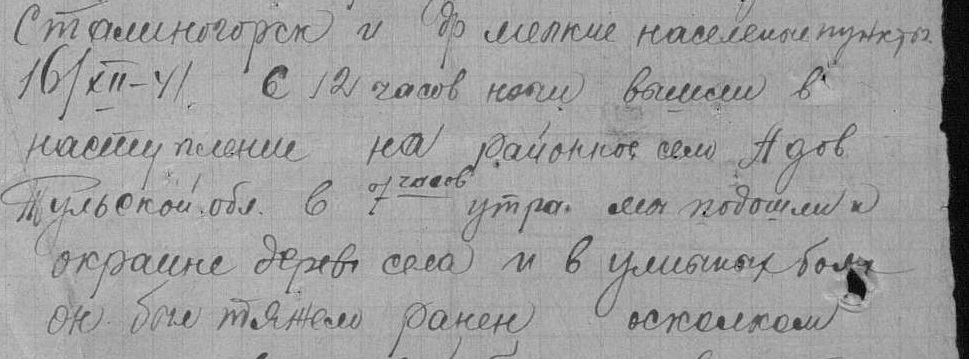 Сталиногорск и др мелкие населеные пункты.
16/XII-41. С 12 часов ночи вышли в
наступление на районное село Адов
Тульской обл. в 7 часов утра. мы подошли к
окраине дерев села и в уличных боях
он был тяжело ранен осколком